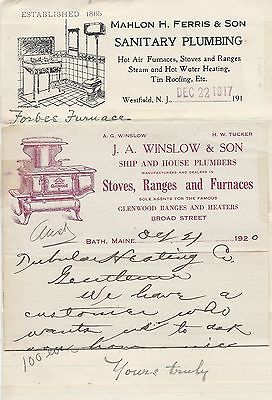 ESTABLISHED 1865
MAHLON H. FERRIS & SON
SANITARY PLUMBING
Hot Air Furnaces, Stoves and Ranges
Steam and Hot Water Heating,
Tin Roofing, Etc.
DEC 22 1917
Westfield, N. J., 191
Forbes Furnace
A. G. WINSLOW H. W. TUCKER
J. A. WINSLOW & SON
SHIP AND HOUSE PLUMBERS
MANUFACTURERS AND DEALERS IN
Stoves, Ranges and Furnaces
SOLE AGENTS FOR THE FAMOUS
GLENWOOD RANGES AND HEATERS
BROAD STREET
BATH, MAINE, 1920
Heating Co
Gentlemen
We have a
customer who
wants us to ask
you
Yours truly